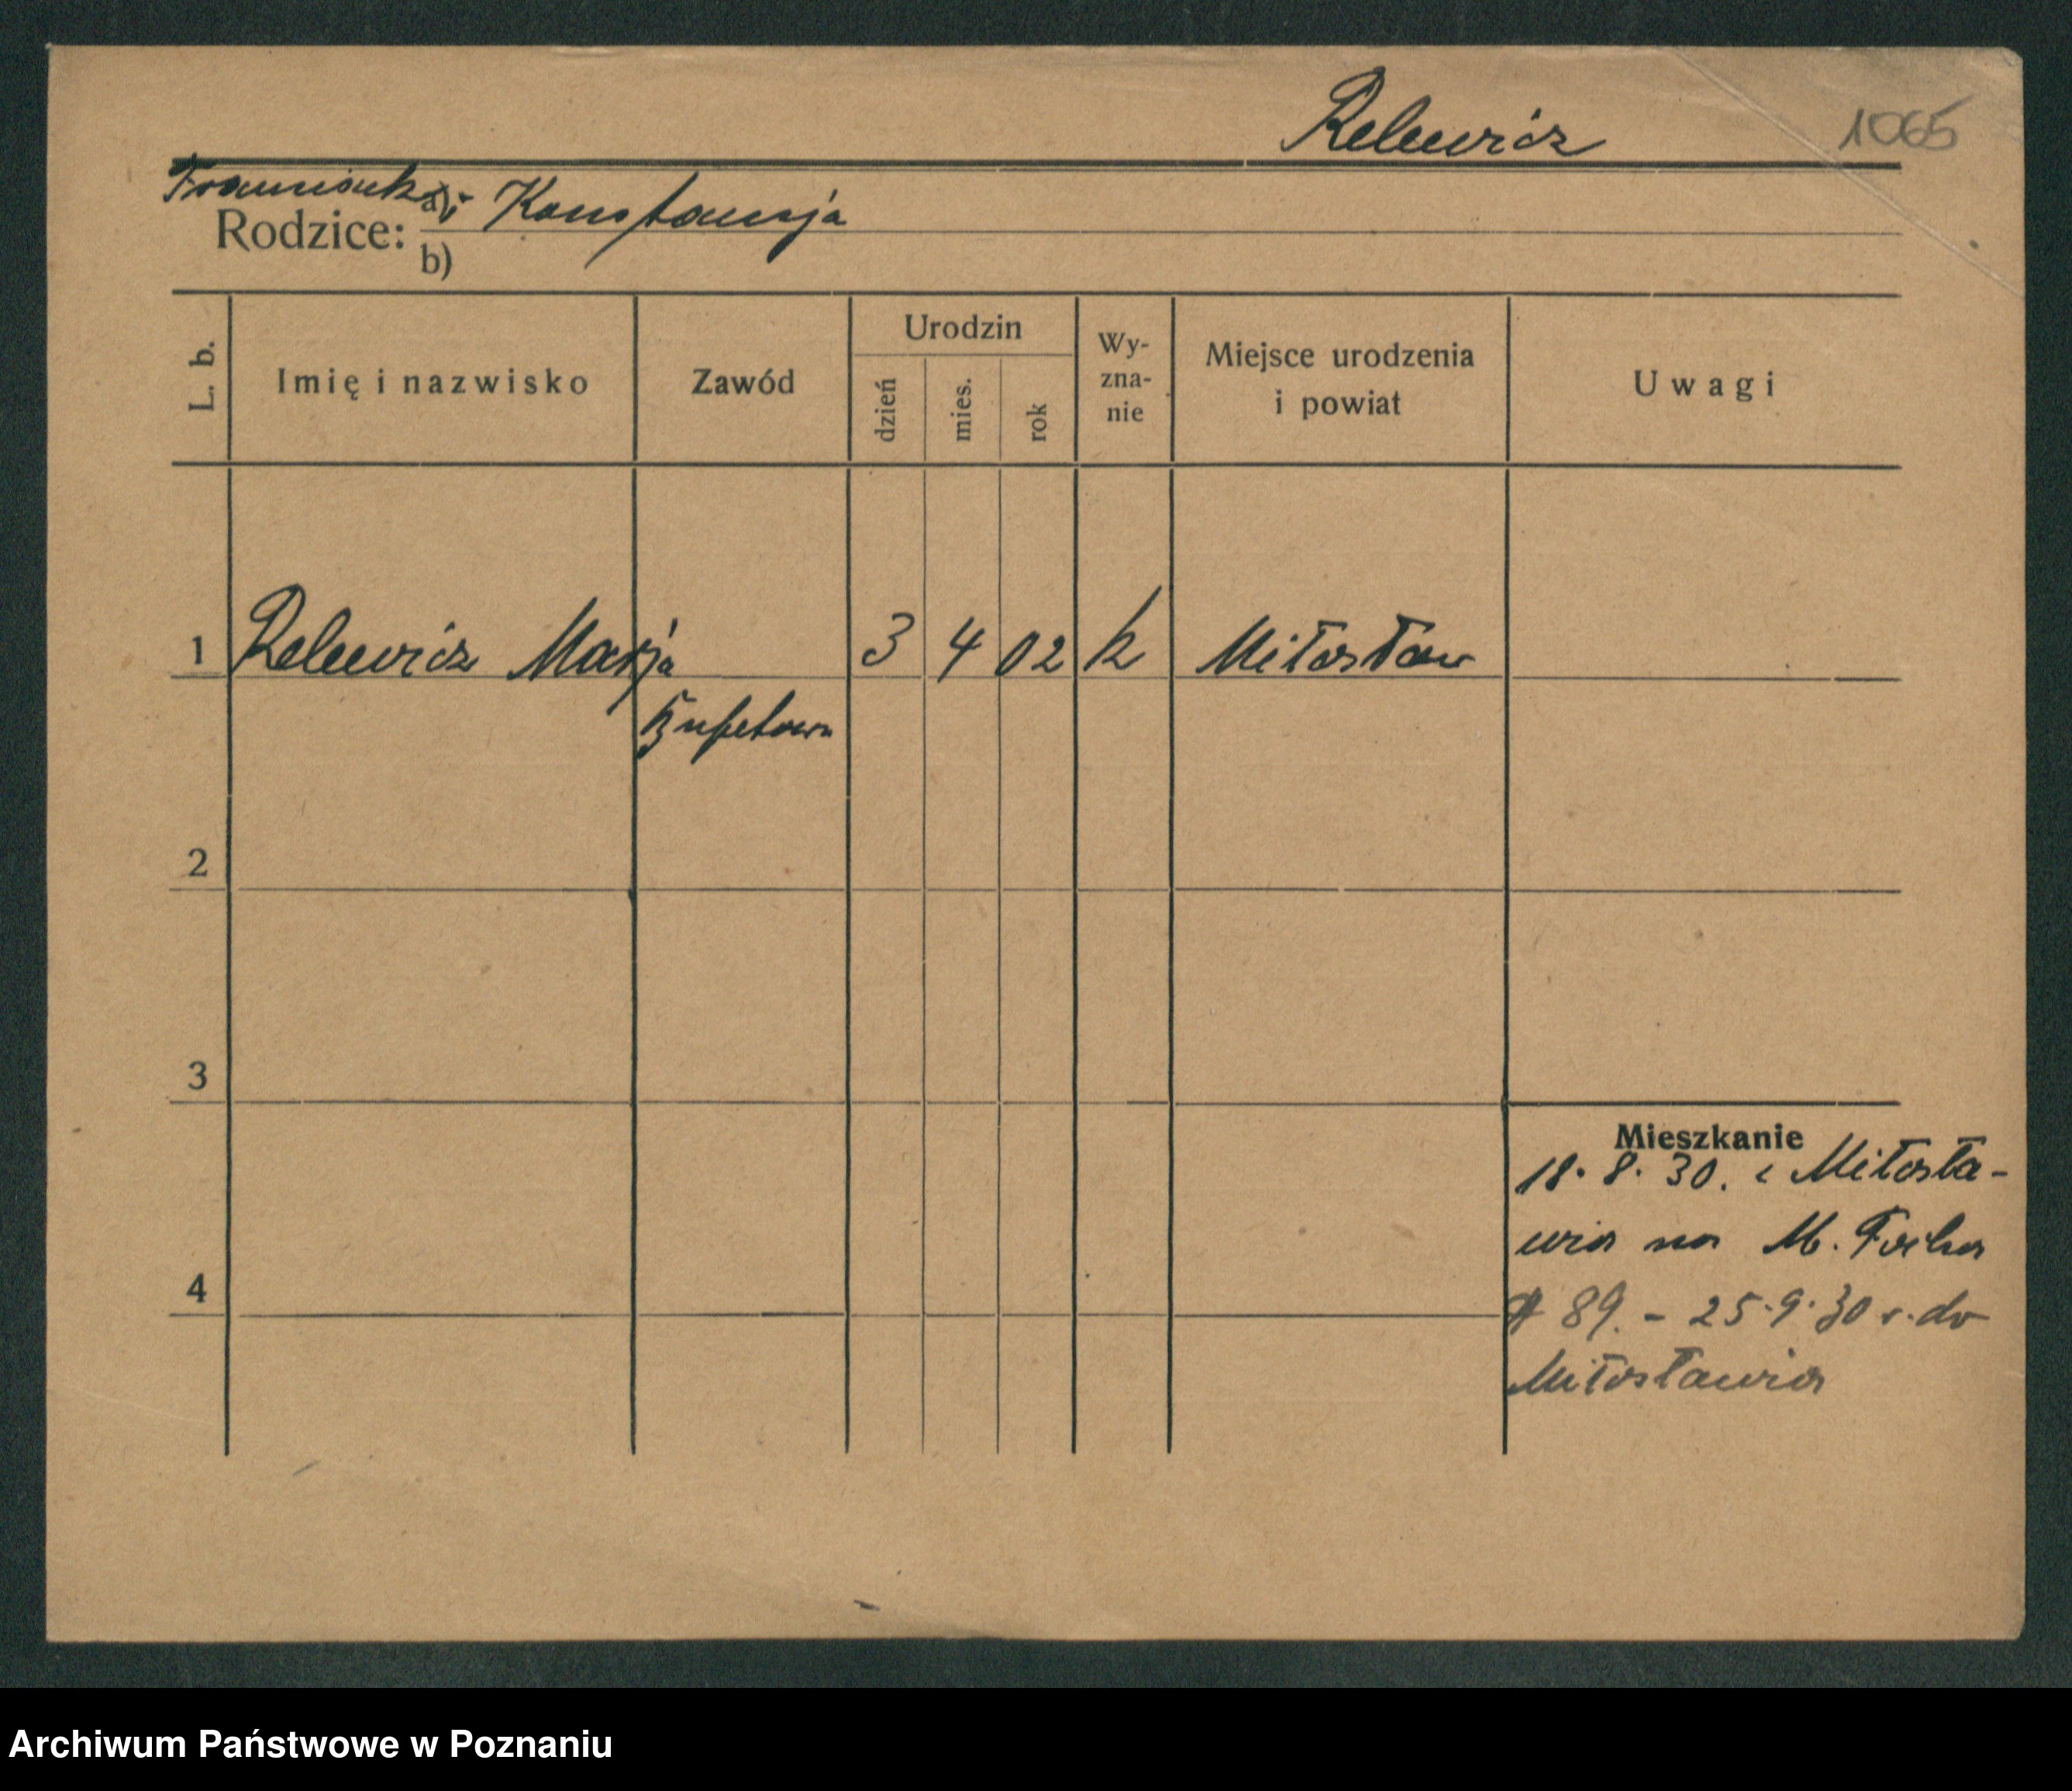 Relewicz 1065
Franciszek i Konstancja
Rodzice: a)
b)
L. b. Imię i nazwisko Zawód Urodzin dzień mies. rok Wy-zna-nie Miejsce urodzenia i powiat Uwagi
1 Relewicz Marja 3 4 02 k Miłosław
Bufetowa
2
3
Mieszkanie
18. 8. 30. z Miłosła-
wia na M. Focha
4
89. - 25.9.30 r. do
Miłosławia
Archiwum Państwowe w Poznaniu